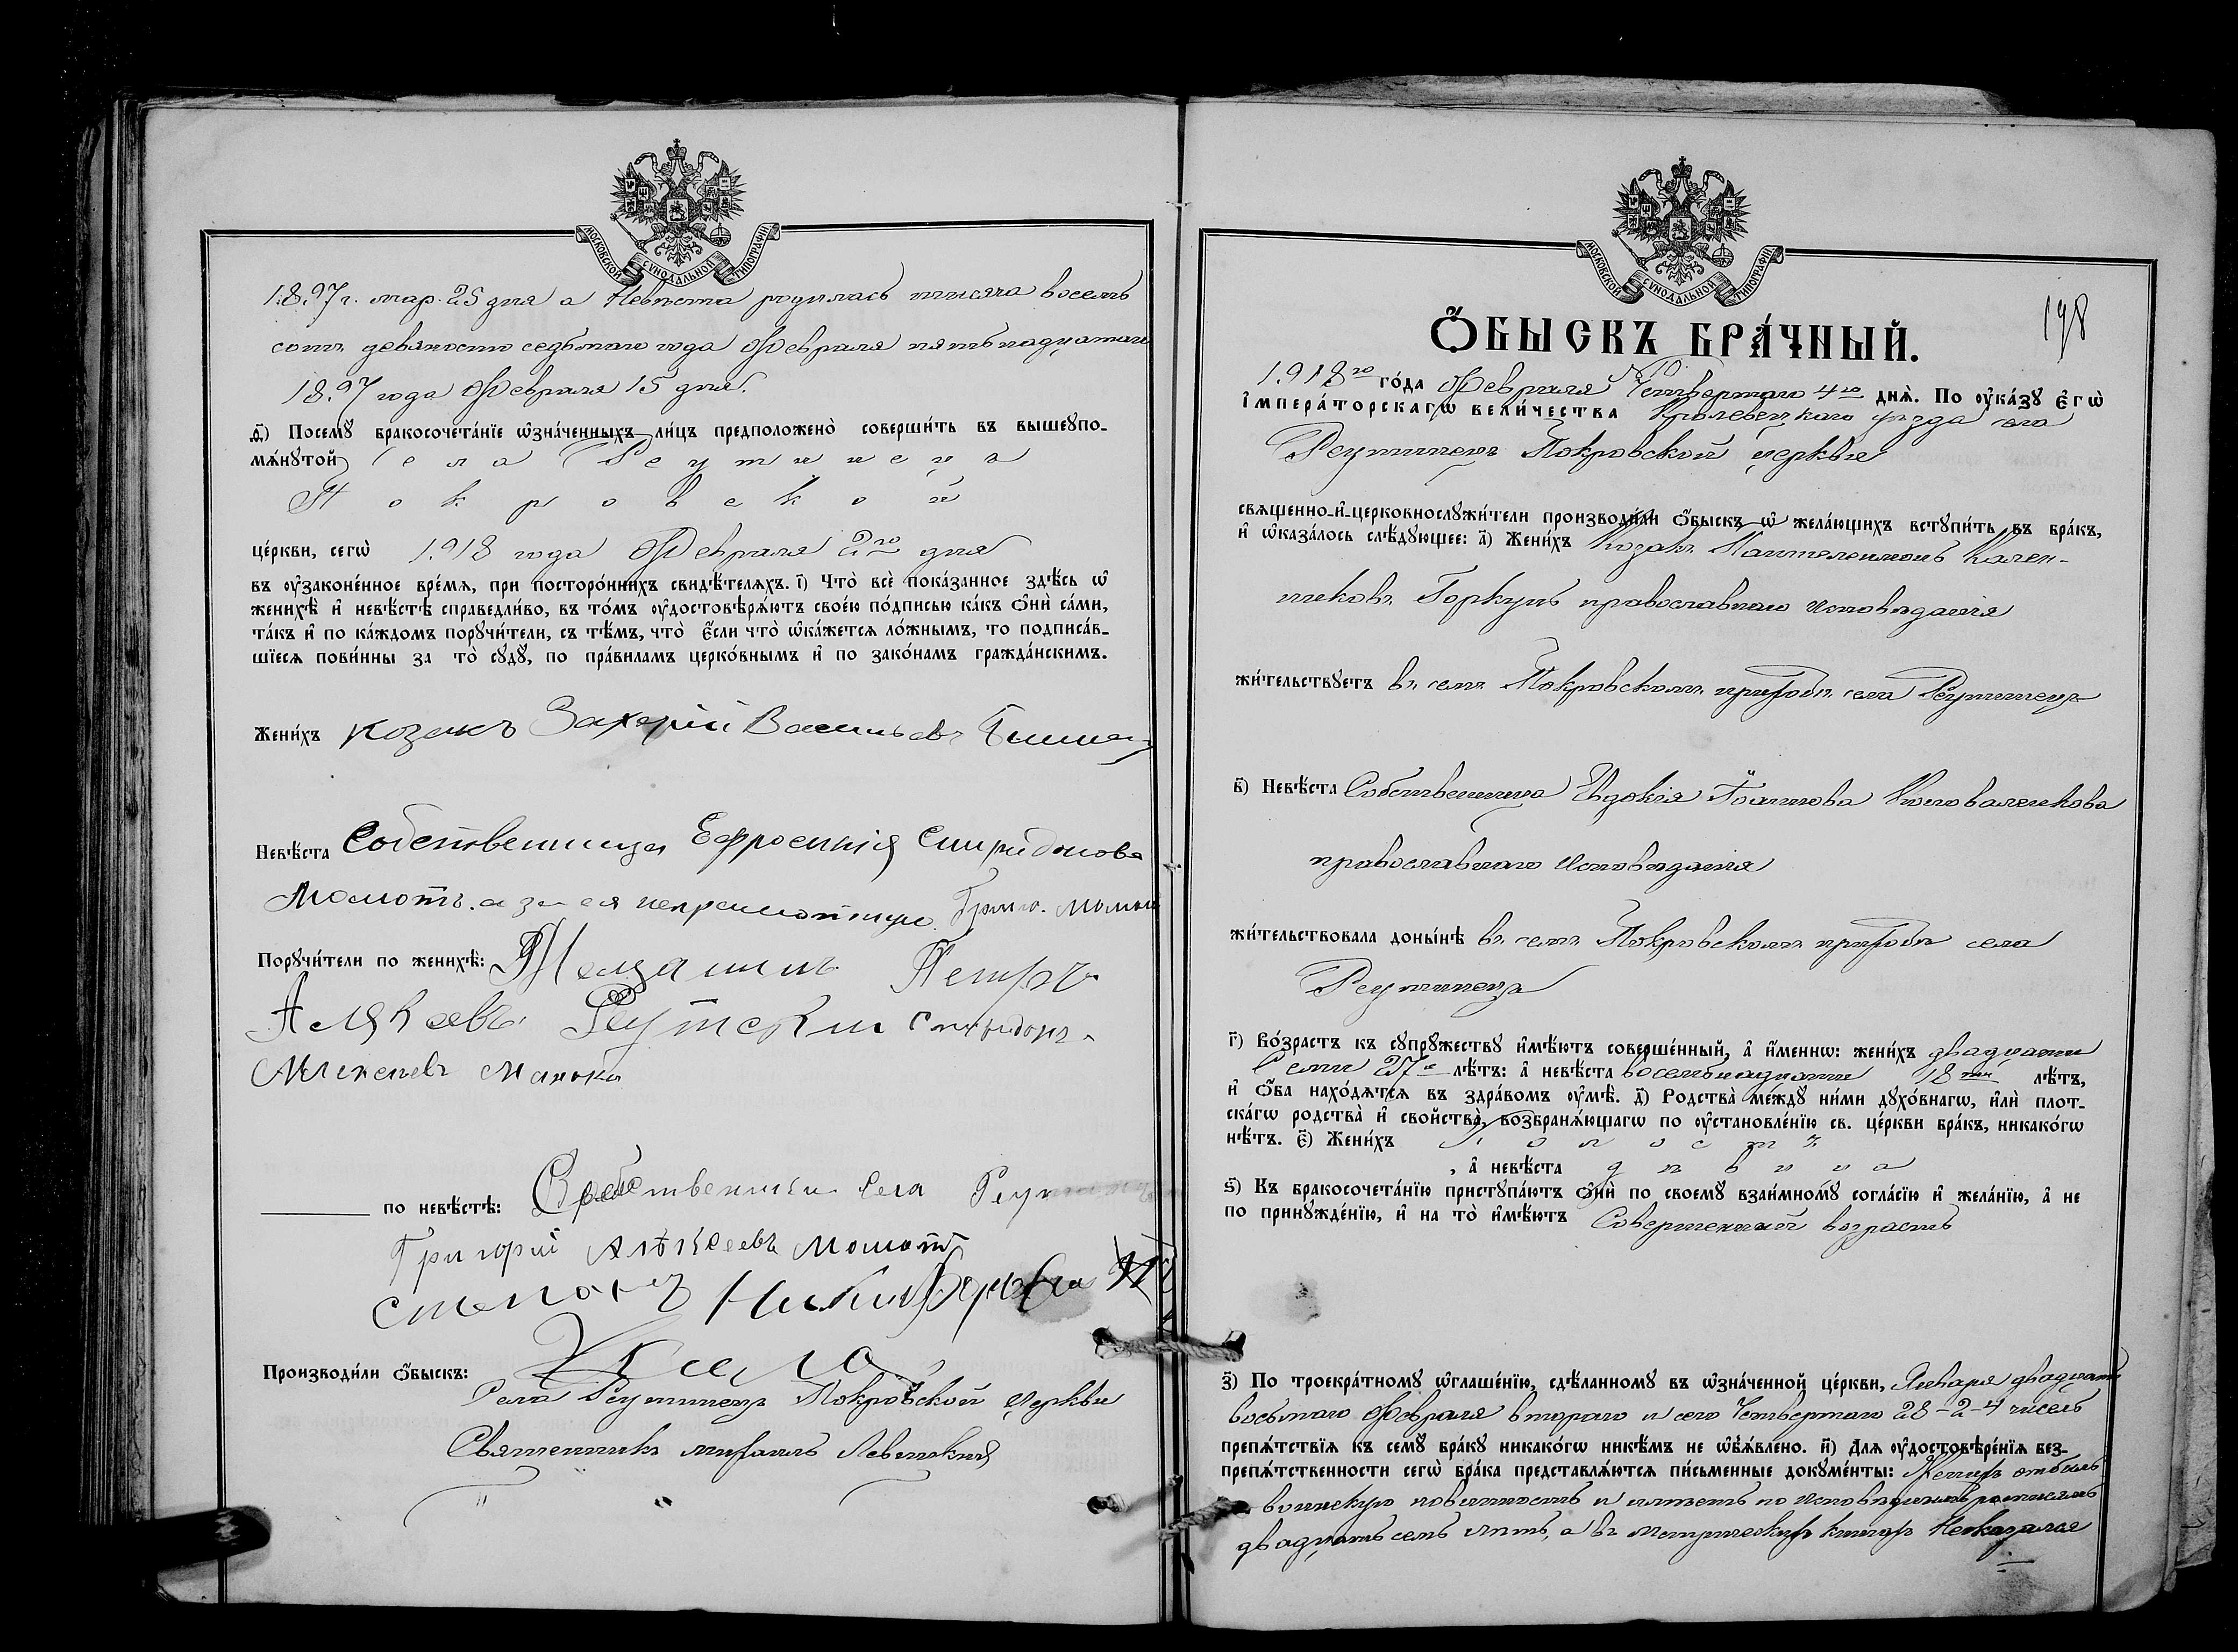 МОСКОВСКОЙ СѴНОДАЛЬНОЙ ТИПОГРАФІИ
1897 г. мар. 25 дня а Невѣста родилась тысяча восемь
сотъ девяносто седьмаго года Февраля пятьнадцатаго
1897 года Февраля 15 дня.
ѳ҃) Посемꙋ̀ бракосочета́нїе ѡ҆зна́ченныхъ ли́цъ предположено̀ соверши́ть въ вышеꙋпо-
мѧ́нꙋтой села Реутинецъ
Покровской
це́ркви, сегѡ̀ 1918 года Февраля 2го дня
въ ᲂу҆зако́ненное вре́мѧ, при посторо́ннихъ свидѣ́телѧхъ. і҃) Что̀ всѐ пока́занное здѣ́сь ѡ҆
женихѣ̀ и҆ невѣ́стѣ справедли́во, въ то́мъ ᲂу҆достовѣрѧ́ютъ свое́ю по́дписью ка́къ ѻ҆нѝ са́ми,
та́къ и҆ по ка́ждомъ порꙋчи́тели, съ тѣ́мъ, что̀ є҆́сли что̀ ѡ҆ка́жетсѧ ло́жнымъ, то подписа́в-
шїесѧ пови́нны за то̀ сꙋдꙋ̀, по пра́виламъ церко́внымъ и҆ по зако́намъ гражда́нскимъ.
Жени́хъ козакъ Захарій Васильевъ
Невѣ́ста Собственница Ефросинія Спиридонова
Момотъ. а за ея неграмотную
Порꙋчи́тели по женихѣ̀: Мещанинъ Петръ
Реутскій Спиридонъ
по невѣ́стѣ: Собственники села
Григорій Алѣксеевъ Момотъ
Степанъ Никифоровъ
Производи́ли ѻ҆́быскъ:
Села Реутинецъ Покровской Церкви
Священникъ Михаилъ Левитскій
МОСКОВСКОЙ СѴНОДАЛЬНОЙ ТИПОГРАФІИ
198
Ѻ҆́БЫСКЪ БРА́ЧНЫЙ.
1918го го́да Февраля Четвертаго 4го днѧ̀. По ᲂу҆ка́зꙋ Є҆гѡ̀
И҆мпера́торскагѡ вели́чества Кролевецкаго уѣзда села
Реутинецъ Покровской церкви
свѧще́нно-и҆-церковнослꙋжи́тели производи́ли ѻ҆́быскъ ѡ҆ жела́ющихъ встꙋпи́ть въ бра́къ,
и҆ ѡ҆каза́лось слѣ́дꙋющее: а҃) Жени́хъ Козакъ Пантелеимонъ Кален-
никовъ Горкунъ православнаго исповѣданія
жи́тельствꙋетъ въ семъ Покровскомъ приходѣ села Реутинецъ
в҃) Невѣ́ста Собственница Евдокія Іоаннова Коноваленкова
православнаго исповѣданія
жи́тельствовала доны́нѣ въ семъ Покровскомъ приходѣ села
Реутинецъ
г҃) Во́зрастъ къ сꙋпрꙋ́жествꙋ и҆мѣ́ютъ соверше́нный, а҆ и҆́меннѡ: жени́хъ двадцати
семи 27и лѣ́тъ: а҆ невѣ́ста восемьнадцати 18ти лѣ́тъ,
и҆ ѻ҆́ба нахо́дѧтсѧ въ здра́вомъ ᲂу҆мѣ̀. д҃) Родства̀ ме́ждꙋ ни́ми дꙋхо́внагѡ, и҆лѝ плот-
ска́гѡ родства̀ и҆ сво́йства, возбранѧ́ющагѡ по ᲂу҆становле́нїю св. це́ркви бра́къ, никако́гѡ
нѣ́тъ. є҃) Жени́хъ холостъ
, а҆ невѣ́ста дѣвица
ѕ҃) Къ бракосочета́нїю пристꙋпа́ютъ ѻ҆нѝ по своемꙋ̀ взаи́мномꙋ согла́сїю и҆ жела́нїю, а҆ не
по принꙋжде́нїю, и҆ на то̀ и҆мѣ́ютъ Совершенный возрастъ
з҃) По троекра́тномꙋ ѡ҆глаше́нїю, сдѣ́ланномꙋ въ ѡ҆зна́ченной це́ркви, Января двадцать
восьмаго Февраля втораго и сего Четвертаго 28-2-4 чиселъ
препѧ́тствїѧ къ семꙋ̀ бра́кꙋ никако́гѡ никѣ́мъ не ѡ҆б̾ѧ́влено. и҃) Длѧ ᲂу҆достовѣре́нїѧ без-
препѧ́тственности сегѡ̀ бра́ка представлѧ́ютсѧ пи́сьменные докꙋме́нты: Женихъ отбылъ
воинскую повинность и имѣетъ по исповѣднымъ росписямъ
двадцать семь лѣтъ, а въ метрическихъ книгахъ Неоказался